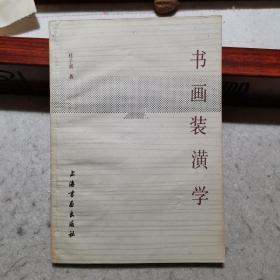 书画装潢学
杜子熊 著
上海书画出版社